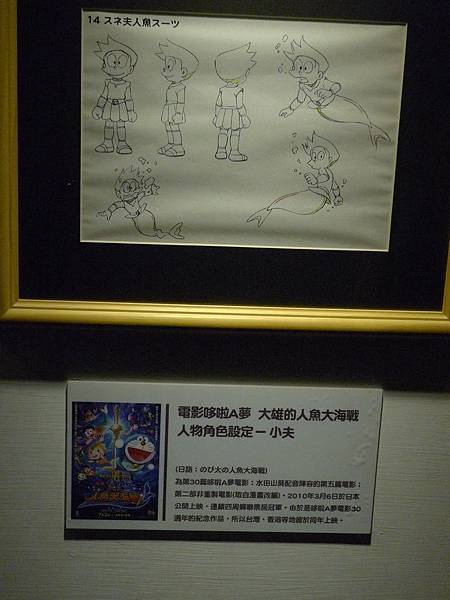 14 スネ夫人魚スーツ
電影哆啦A夢 大雄的人魚大海戰
人物角色設定－小夫
(日語：のび太の人魚大海戦)
為第30篇哆啦A夢電影；水田山葵配音陣容的第五篇電影；
第二部非重製電影(取自漫畫改編)。2010年3月6日於日本
公開上映，連續四周蟬聯票房冠軍。由於是哆啦A夢電影30
週年的紀念作品，所以台灣、香港等地皆於同年上映。